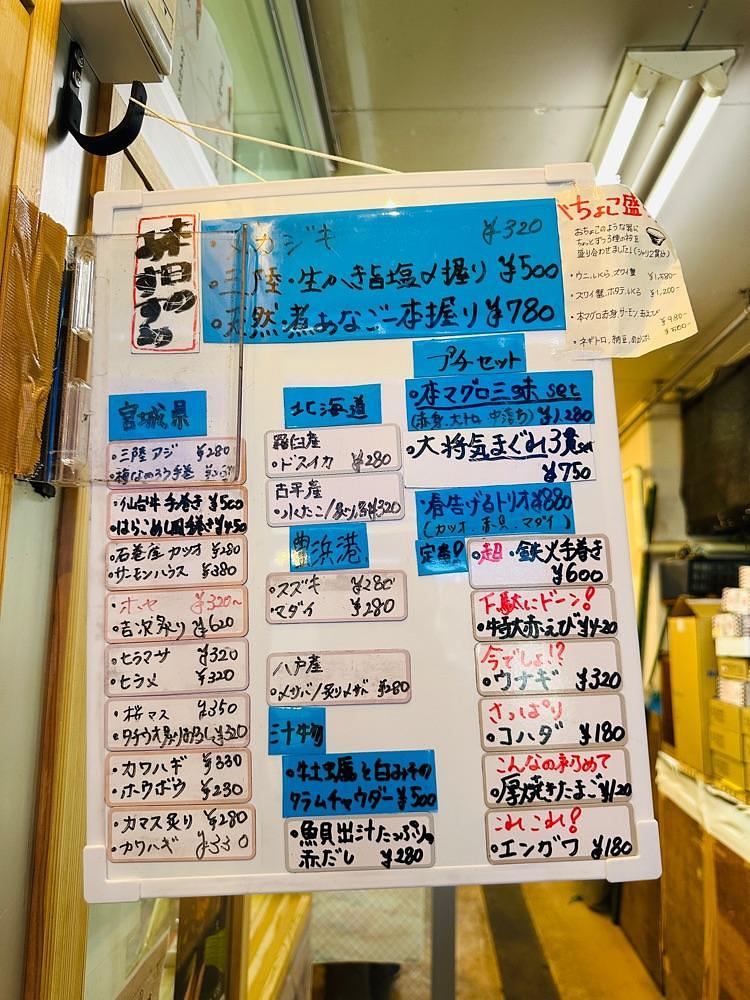 メカジキ ¥320
・三陸・生がき旨塩〆握り ¥500
・天然・煮あなご一本握り ¥780
ぺちょこ盛
おちょこのような器に
ちょっとずつ3種のネタを
盛り合わせました!(シャリ2貫分)
・ウニ、いくら、ズワイ蟹 ¥1,580-
・ズワイ蟹、ホタテ、いくら ¥1,200-
・本マグロ赤身、サーモン、甘えび
¥980-
・ネギトロ、納豆、めかぶ
¥500-
プチセット
・本マグロ三昧set
(赤身、大トロ、中落ち) ¥1,280
・大将気まぐれ3貫set
¥750
・春告げるトリオ¥880
(カツオ、マダイ)
定番!
・超・鉄火手巻き
¥600
下駄にドーン!
・特大赤えび ¥420
今でしょ!?
・ウナギ ¥320
さっぱり
・コハダ ¥180
こんなの初めて
・厚焼きたまご ¥120
これこれ!
・エンガワ ¥180
宮城県
・三陸アジ ¥280
・仙台牛手巻き ¥500
・はらこめし風手巻き ¥450
・石巻産カツオ ¥280
・サーモンハラス ¥380
・ホヤ ¥320~
・吉次炙り ¥620
・ヒラマサ ¥320
・ヒラメ ¥320
・桜マス ¥350
・タチウオ炙りおろし ¥320
・カワハギ ¥330
・ホウボウ ¥230
・カマス炙り ¥280
・カワハギ ¥330
北海道
羅臼産
・ドスイカ ¥280
古平産
・水たこ/炙り ¥320
豊浜港
・スズキ ¥280
・マダイ ¥280
八戸産
・〆サバ/炙り〆サバ ¥280
汁物
・牡蠣と白みその
クラムチャウダー ¥500
・魚貝出汁たっぷりの
赤だし ¥280